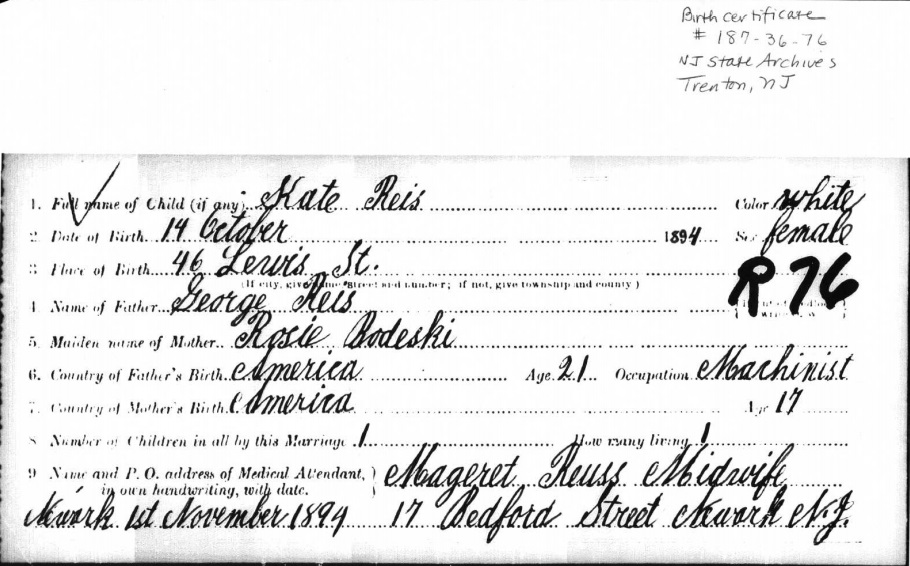 Birth certificate
# 187-36-76
NJ State Archives
Trenton, NJ
1. Full name of Child (if any) Kate Reis Color white
2. Date of Birth 14 October 1894 Sex female
3. Place of Birth 46 Lewis St.
(If city, give name Street and number; if not, give township and county)
R 76
4. Name of Father George Reis
5. Maiden name of Mother Rosie Bodeski
6. Country of Father's Birth America Age 21 Occupation Machinist
7. Country of Mother's Birth America Age 17
8 Number of Children in all by this Marriage 1 How many living 1
9 Name and P. O. address of Medical Attendant, } Mageret Reuss Midwife
in own handwriting, with date.
Newark 1st November 1894 17 Bedford Street Newark N.J.